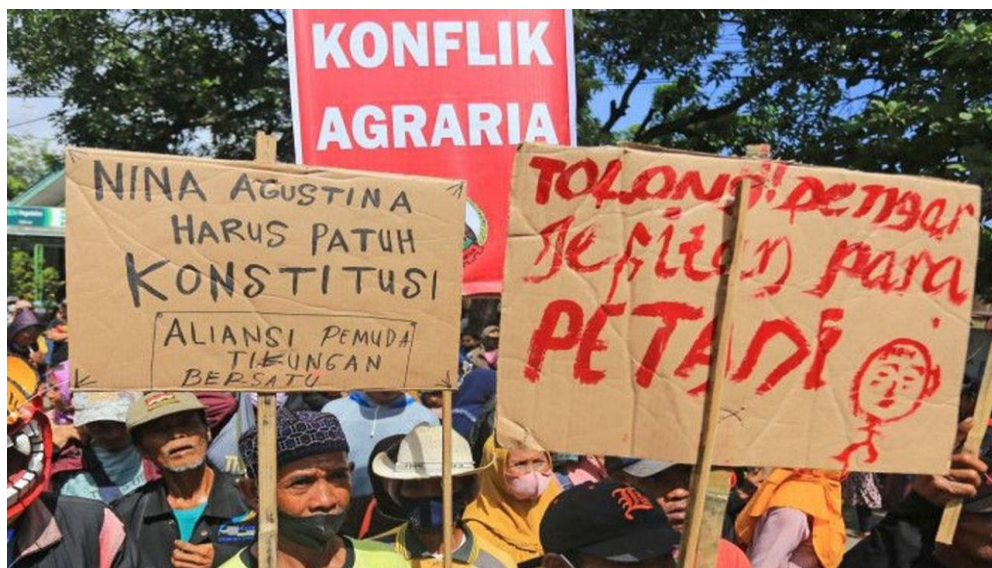 KONFLIK
AGRARIA
NINA AGUSTINA
HARUS PATUH
KONSTITUSI
ALIANSI PEMUDA
TIKUNGAN
BERSATU
TOLONG! DENGAR
JERITAN para
PETADI